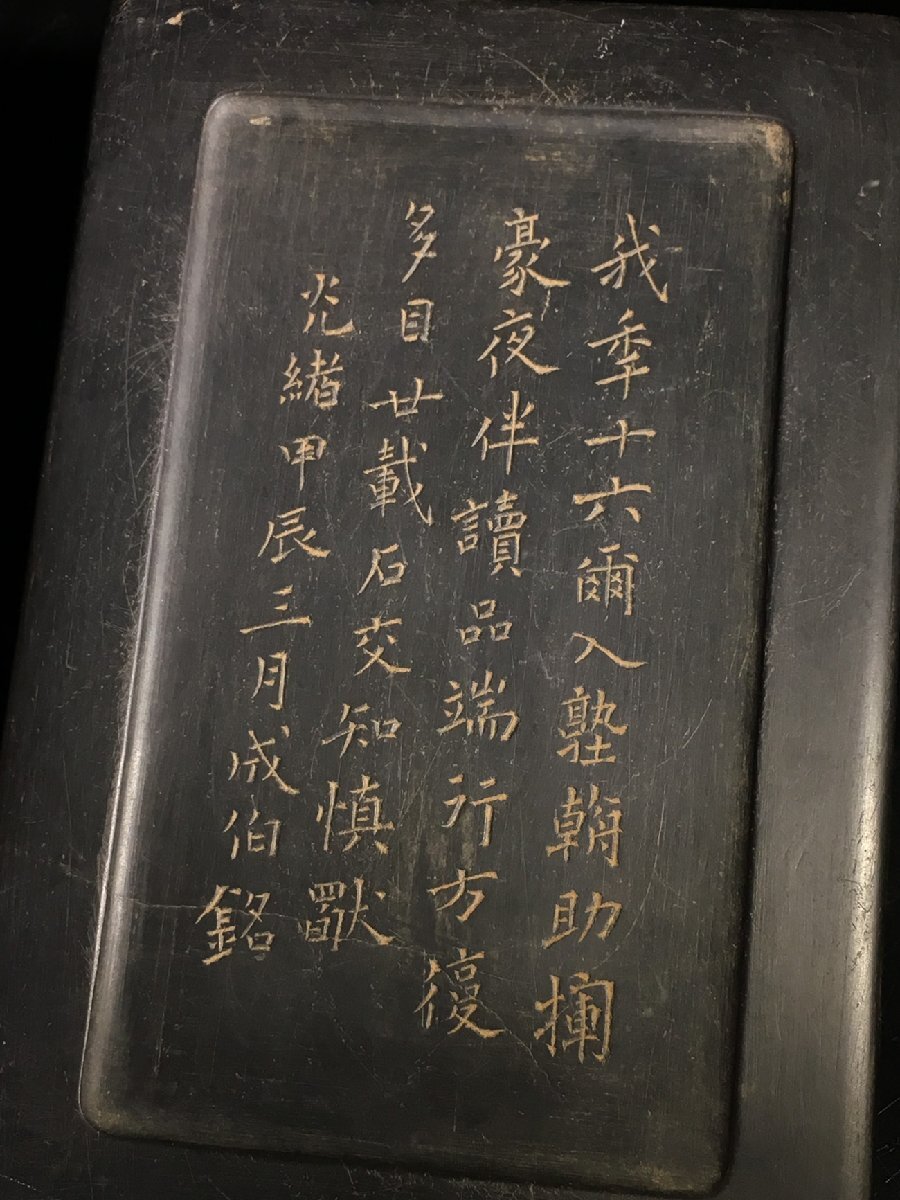 我秊十六爾入塾輔助揮
豪夜伴讀品端行方復
多目廿載石交知慎默
光緒甲辰三月成伯銘